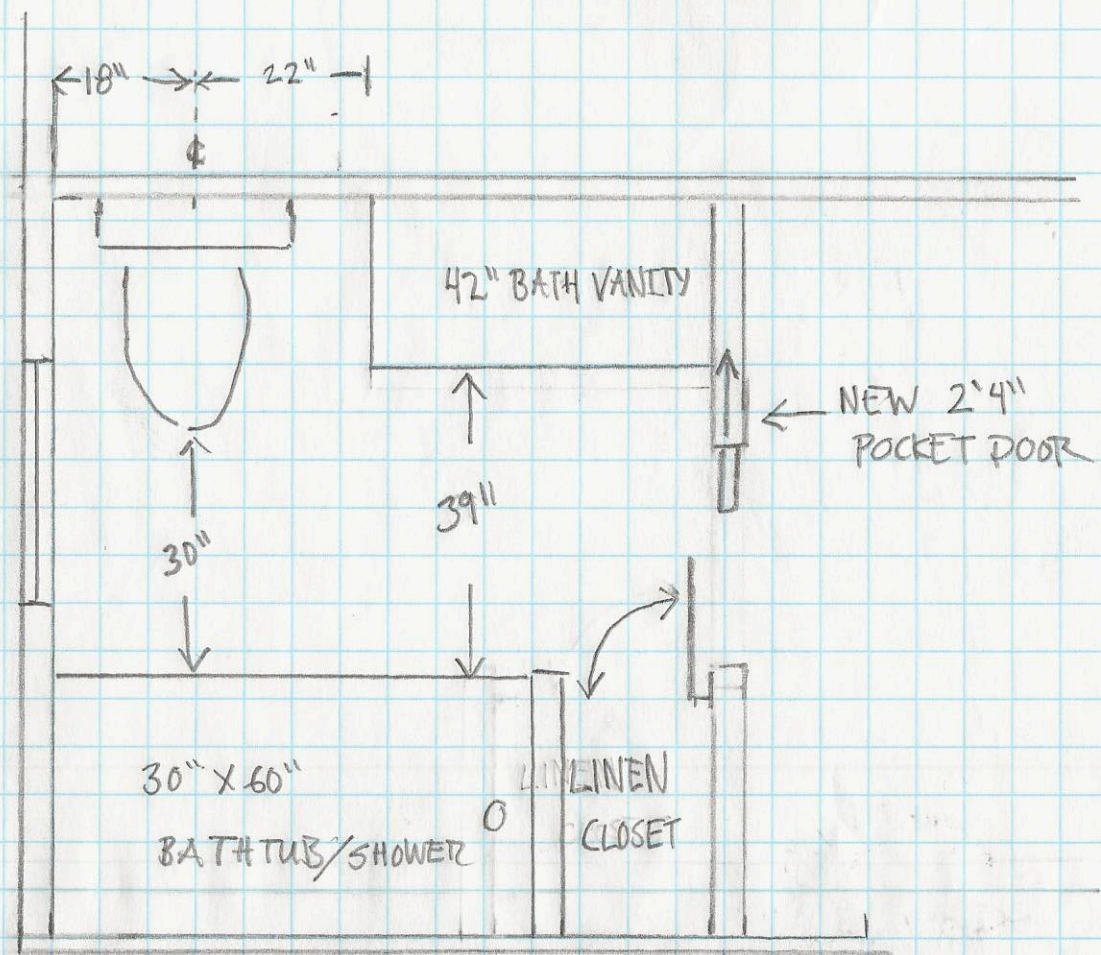 18" 22"
℄
42" BATH VANITY
NEW 2'4"
POCKET DOOR
39"
30"
30" X 60"
BATHTUB/SHOWER
LINEN
CLOSET